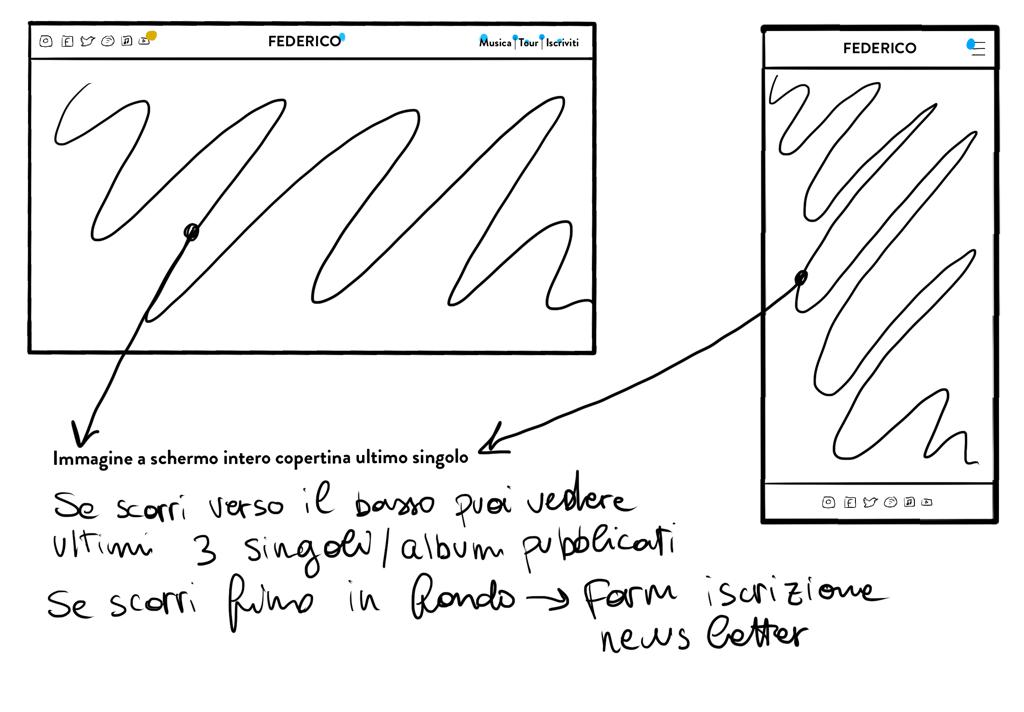 FEDERICO
Musica | Tour | Iscriviti
FEDERICO
Immagine a schermo intero copertina ultimo singolo
Se scorri verso il basso puoi vedere
ultimi 3 singoli/album pubblicati
Se scorri fino in fondo → Form iscrizione
newsletter